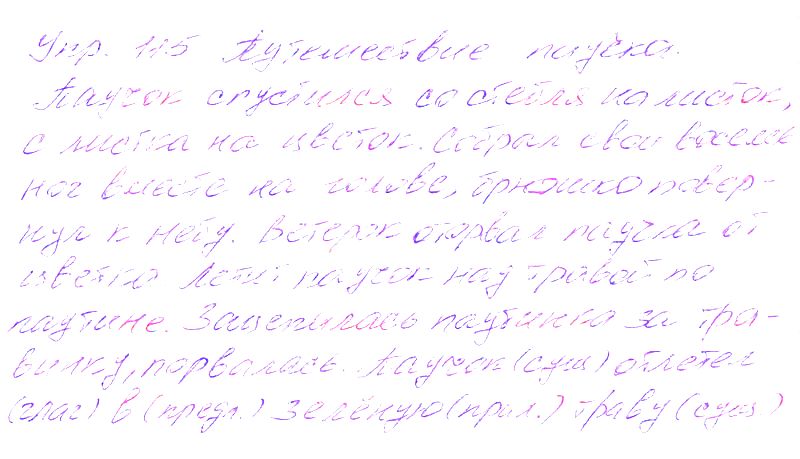 Упр. 115 Путешествие паучка.
Паучок спустился со стебля на листок,
с листка на цветок. Собрал свои восемь
ног вместе на голове, брюшко повер-
нул к небу. Ветерок оторвал паучка от
цветка Летит паучок над травой по
паутине. Зацепилась паутинка за тра-
винку, порвалась. Паучок (сущ) отлетел
(глаг) в (предл.) зелёную (прил.) траву (сущ)